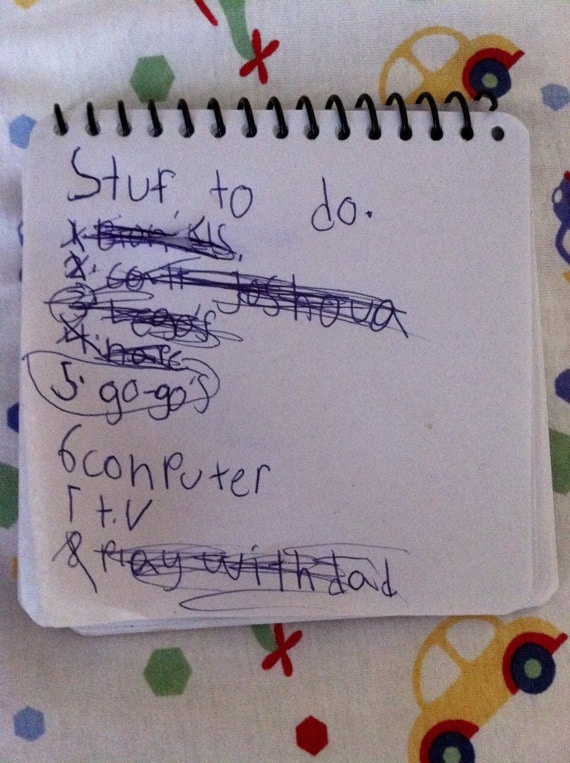 Stuf to do.
1.
2. joshova
3 lego's
4.
5. go-go's
6 conputer
7 t.v
8 Play with dad